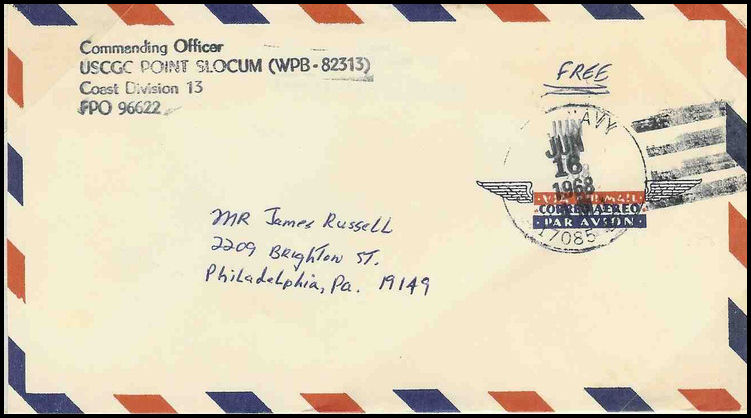 Commanding Officer
USCGC POINT SLOCUM (WPB-82313)
Coast Division 13
FPO 96622
FREE
NAVY
JUN
JUN
16
1968
VIA AIR MAIL
CORREO AEREO
PAR AVION
17085
MR James Russell
2209 Brighton ST.
Philadelphia, Pa. 19149